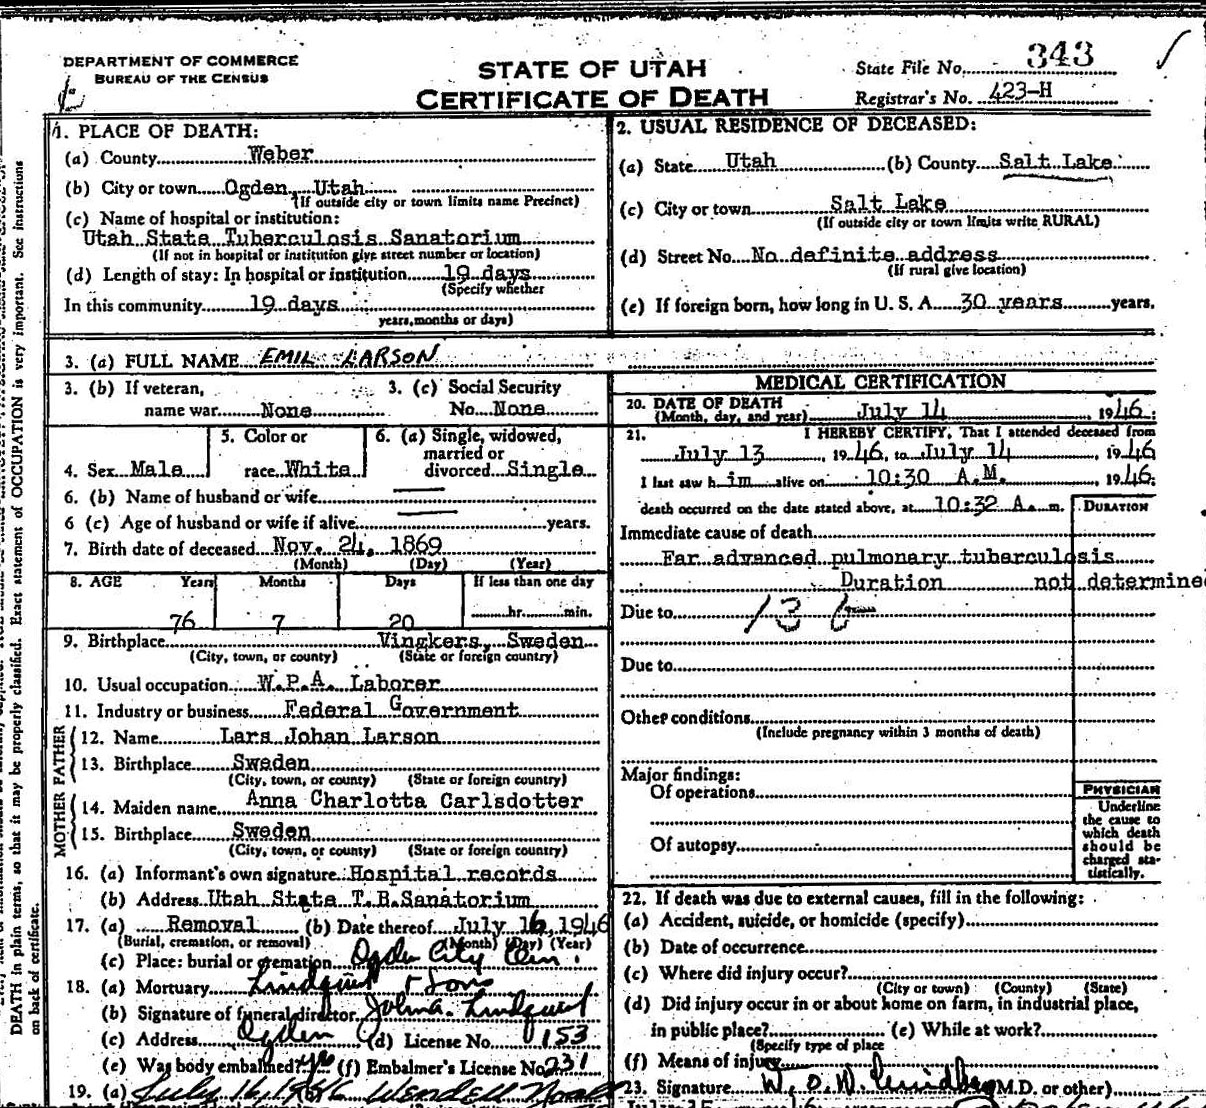 DEPARTMENT OF COMMERCE
BUREAU OF THE CENSUS
STATE OF UTAH
CERTIFICATE OF DEATH
State File No. 343
Registrar's No. 423-H
1. PLACE OF DEATH:
(a) County Weber
(b) City or town Ogden, Utah
(If outside city or town limits name Precinct)
(c) Name of hospital or institution:
Utah State Tuberculosis Sanatorium
(If not in hospital or institution give street number or location)
(d) Length of stay: In hospital or institution 19 days
(Specify whether
In this community 19 days
years, months or days)
2. USUAL RESIDENCE OF DECEASED:
(a) State Utah (b) County Salt Lake
(c) City or town Salt Lake
(If outside city or town limits write RURAL)
(d) Street No. No definite address
(If rural give location)
(e) If foreign born, how long in U. S. A. 30 years years.
3. (a) FULL NAME EMIL LARSON
3. (b) If veteran,
name war None
3. (c) Social Security
No. None
4. Sex Male
5. Color or
race White
6. (a) Single, widowed,
married or
divorced Single
6. (b) Name of husband or wife
6 (c) Age of husband or wife if alive years.
7. Birth date of deceased Nov. 24, 1869
(Month) (Day) (Year)
8. AGE Years Months Days If less than one day
76 7 20 hr. min.
9. Birthplace Vingkers, Sweden
(City, town, or county) (State or foreign country)
10. Usual occupation W.P.A. Laborer
11. Industry or business Federal Government
FATHER
12. Name Lars Johan Larson
13. Birthplace Sweden
(City, town, or county) (State or foreign country)
MOTHER
14. Maiden name Anna Charlotta Carlsdotter
15. Birthplace Sweden
(City, town, or county) (State or foreign country)
16. (a) Informant's own signature Hospital records
(b) Address Utah State T.B. Sanatorium
17. (a) Removal (b) Date thereof July 16, 1946
(Burial, cremation, or removal) (Month) (Day) (Year)
(c) Place: burial or cremation Ogden City Cem.
18. (a) Mortuary Lindquist & Sons
(b) Signature of funeral director Lindquist
(c) Address Ogden (d) License No. 153
(e) Was body embalmed? yes (f) Embalmer's License No. 231
19. (a) July 16, 1946 Wendell
MEDICAL CERTIFICATION
20. DATE OF DEATH
(Month, day, and year) July 14, 1946.
21. I HEREBY CERTIFY, That I attended deceased from
July 13, 1946, to July 14, 1946
I last saw him alive on 10:30 A.M. 1946.
death occurred on the date stated above, at 10:32 A. m.
DURATION
Immediate cause of death
Far advanced pulmonary tuberculosis
Duration not determine
Due to 13 b
Due to
Other conditions
(Include pregnancy within 3 months of death)
Major findings:
Of operations
Of autopsy
PHYSICIAN
Underline
the cause to
which death
should be
charged sta-
tistically.
22. If death was due to external causes, fill in the following:
(a) Accident, suicide, or homicide (specify)
(b) Date of occurrence
(c) Where did injury occur?
(City or town) (County) (State)
(d) Did injury occur in or about home on farm, in industrial place,
in public place? (e) While at work?
(Specify type of place
(f) Means of injury
23. Signature (M.D. or other)
DEATH in plain terms, so that it may be properly classified. Exact statement of OCCUPATION is very important. See instructions
on back of certificate.